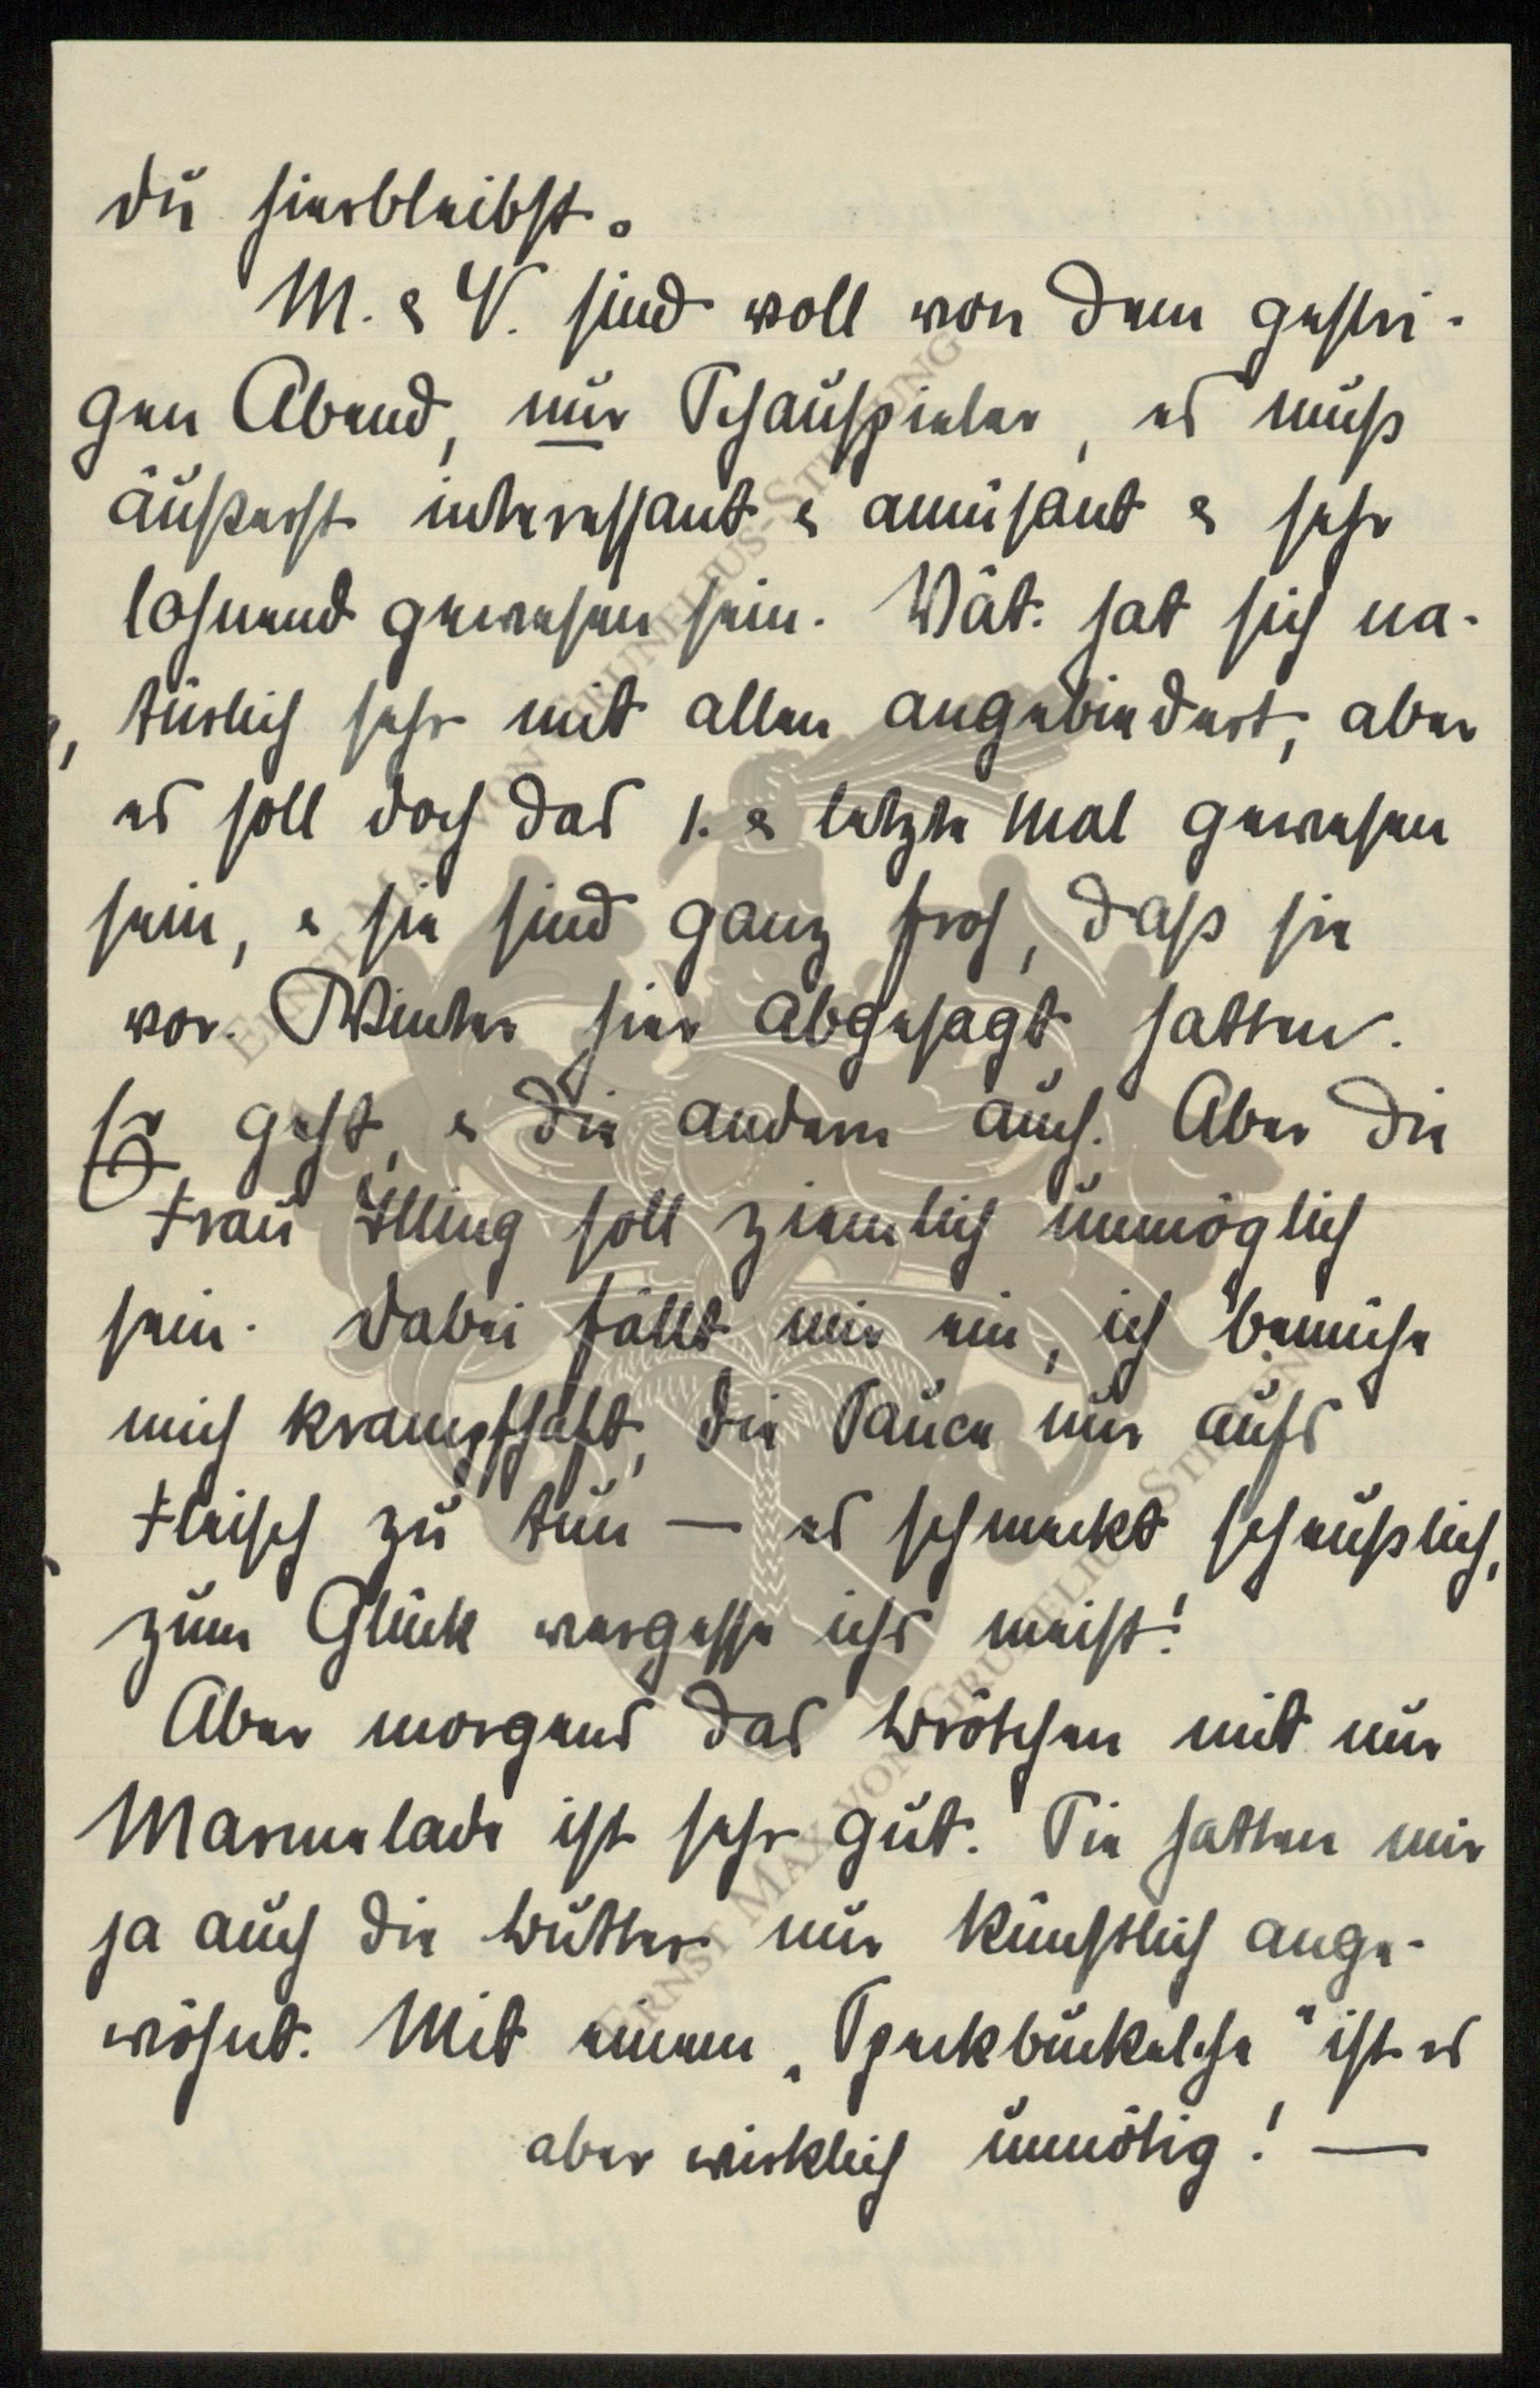 du hierbleibst.
M. & V. sind voll von dem gestri-
gen Abend, nur Schauspieler, es muß
äußerst interessant & amüsant & sehr
lohnend gewesen sein. Vät. hat sich na-
türlich sehr mit allen angebiedert, aber
es soll doch das 1. & letzte Mal gewesen
sein, & sie sind ganz froh, daß sie
vor. Winter hier abgesagt hatten.
Er geht, & die andern auch. Aber die
Frau Illing soll ziemlich unmöglich
sein. Dabei fällt mir ein, ich bemühe
mich krampfhaft, die Sauce nur aufs
Fleisch zu tun — es schmeckt scheußlich,
zum Glück vergesse ichs meist!
Aber morgens das Brötchen mit nur
Marmelade ist sehr gut. Sie hatten mir
ja auch die Butter nur künstlich ange-
wöhnt. Mit einem „Speckbuckelche" ist es
aber wirklich unnötig! —
ERNST MAX VON GRUNELIUS-STIFTUNG
ERNST MAX VON GRUNELIUS-STIFTUNG